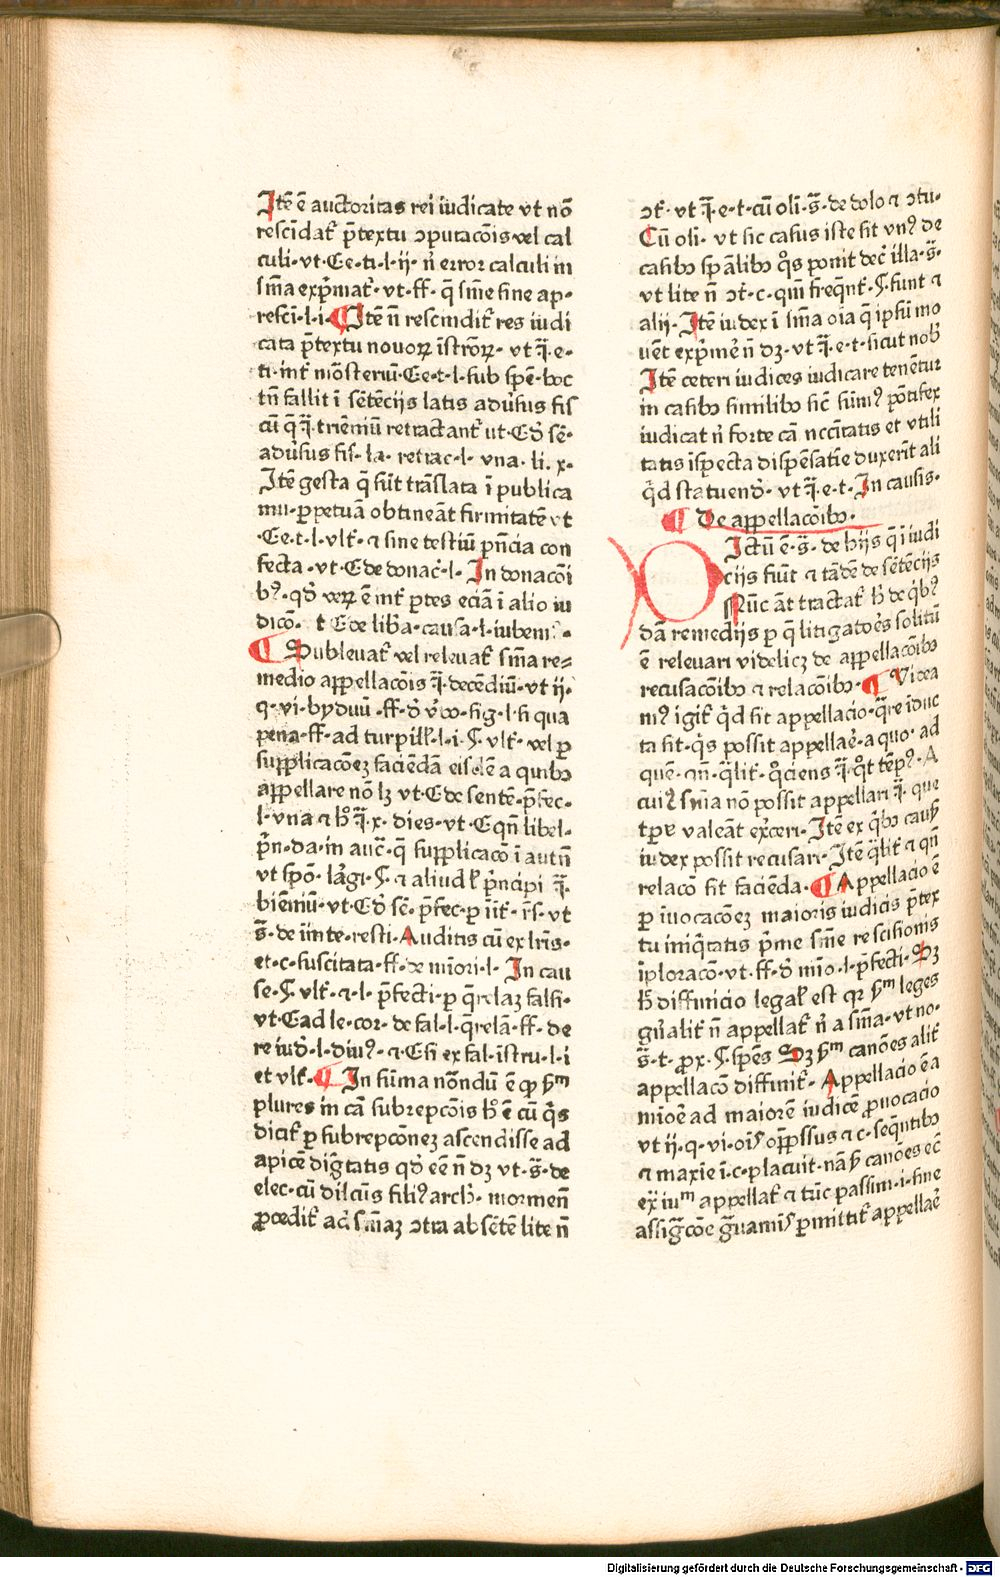 Itē ē auctoritas rei iudicate vt nō
rescīdat᷑ p̄textu ↄputacōis vel cal
culi· vt· C̄ e· ti· l· ij· n̄ error calculi in
sm̄a exp̄mat᷑· vt· ff· q̄ sm̄e sine ap·
resci· l· i· ¶ Itē n̄ rescindit᷑ res iudi
cata p̄textu nouoꝝ īstrōꝝ· vt ī· e·
ti· int᷑ mōsteriū· C̄ e· t· l· sub spē· hoc
tn̄ fallit ī sētēcijs latis adūsus fis
cū q̄ ī triēniū retractant᷑ ut· C̄ ð sē·
adūsus fis· la· retrac· l· vna· li· x·
Itē gesta q̄ sūt trāslata ī publica
mu· ꝑpetuā obtineāt firmitatē vt
·C̄ e· t· l· vlt᷑· ⁊ sine testiū pn̄cia con
fecta· vt· C̄ de donac̄· l· In donacōi
bꝰ· qð veꝝ ē int᷑ ꝑtes eciā ī alio iu
dicō· t C̄ de lib̄a· causa· l· iubem·
¶ Subleuat᷑ vel releuat᷑ sm̄a re⸗
medio appellacōis ī· decēdiū· vt ij·
q· vi· byduū ·ff· ð
pena· ff· ad turpill᷑· l· i· §· vlt᷑· vel ꝑ
supplicacōeꝫ faciēdā eisdē a quibꝫ
appellare nō lꝫ vt· C̄ de sentē· p̄fec·
l· vna ⁊ hͦ ī· x· dies· vt· C̄ qn̄ libel·
p̄n· da· in auc̄· q̄ supplicacō ī autn̄
vt spō· lar̄gi· §· ⁊ aliud l᷑ p̄ncipi ī·
biēniū· vt· C̄ ð sē· p̄fec· ꝑ īit᷑· r̄s· vt
s̄· de iīnte· resti· Auditis cū ex lr̄is·
et· c· suscitata· ff· de miōri· l· In cau
se· §· vlt᷑· ⁊· l· p̄fecti· ꝑ q̄relaꝫ falsi·
vt· C̄ ad le· cor· de fal· l· q̄rela· ff· de
re iuð· l· diuꝰ· ⁊ C̄ si ex fal· īstru· l· i
et vlt᷑· ¶ In sūma nōndū ē ꝙ ẜm
plures in cā subrepcōis hͦ ē cū q̄s
dicit᷑ ꝑ subrepcōneꝫ ascendisse ad
apicē diḡtatis qð eē n̄ dꝫ vt· s̄· de
elec· cū dilc̄us filiꝰ arch· mormen̄
ꝓcedit᷑ ad sm̄aꝫ ↄtra absētē lite n̄
ↄt᷑· vt ī· e· t· cū oli· s̄· de dolo ⁊ ↄtu·
Cū oli· vt sic casus iste sit vnꝰ de
casibꝫ sp̄alibꝫ qͦs ponit dec᷑ illa· s̄·
vt lite n̄ ↄt᷑· c· qm̄ freq̄nt᷑· §· sunt ⁊
alij· Itē iudex ī sm̄a oīa q̄ ipsū mo
uēt exp̄mē n̄ dꝫ· vt ī· e· t· sicut nob᷑
Itē ceteri iudices iudicare tenētur
in casibꝫ similibꝫ sic᷑ sūmꝰ pōtifex
iudicat n̄ forte cā nccītatis et vtili
tatis īspecta dispēsatīe duxerīt ali
q̄d statuenð· vt ī· e· t· In causis·
¶ De appellacōibꝫ·
Ictū ē· s̄· de hijs q̄ ī iudi
cijs fiūt ⁊ tādē de sētēcijs
Nūc āt tractat᷑ hͦ de q̄bꝰ
dā remedijs ꝑ q̄ litigatoēs solitū
ē releuari videlicꝫ de appellacōibꝫ
recusacōibꝫ ⁊ relacōibꝫ· ¶ Videa
mꝰ igit᷑ q̄d sit appellacio· q̄re īduc
ta sit· q̄s possit appellaē· a quo· ad
quē· ⁊n̄· q̄lit᷑· qͦciens ī· qͦt tēpꝰ· A
cuiꝰ sm̄a nō possit appellari ī· que
tꝑe valeāt ex̄ceri· Itē ex q̄bꝫ causꝭ
iudex possit recusari· Itē q̄lit᷑ ⁊ qn̄
relacō sit faciēda· ¶ Appellacio ē
ꝑ īuocacōeꝫ maioris iudicis p̄tex
tu iniq̄tatis p̄me sm̄e rescisionis
īploracō· vt· ff· ð mīo· l· p̄fecti· Sꝫ
hͦ diffinicio legal᷑ est qꝛ ẜm leges
gn̄alit᷑ n̄ appellat᷑ n̄ a sm̄a· vt no·
s̄· t· ꝓx· §· spēs Sꝫ ẜm canōes alit᷑
appellacō diffinit᷑· Appellacio ē a
miōē ad maiorē iudicē ꝓuocacio
vt ij· q· vi· oīs oppssus ⁊ c· seq̄ntibꝫ
⁊ maxīe ī· c· placuit· nā ẜ canōes ec̄
ex̄ iuͫ appellat᷑ ⁊ tūc passim· i· sine
assiḡcōe ḡuamīs ꝑmittit᷑ appellaē
Digitalisierung gefördert durch die Deutsche Forschungsgemeinschaft - DFG